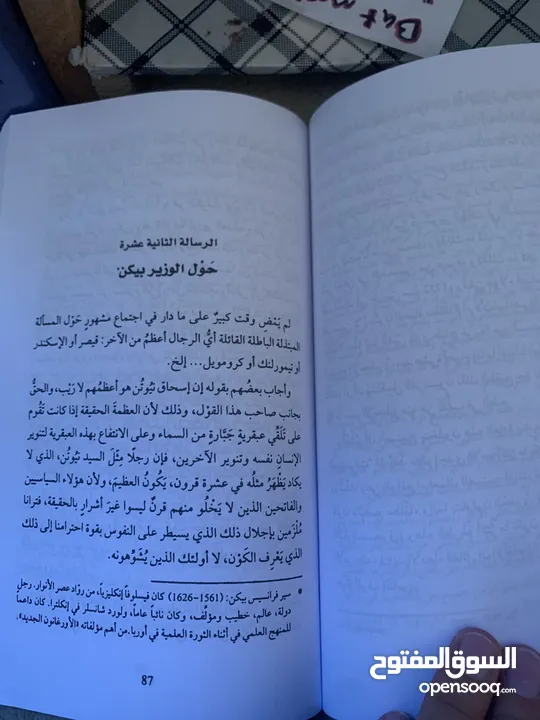 But m
الرسالة الثانية عشرة
حَوْل الوزير بيكن
لم يَمْضِ وقت كبيرٌ على ما دار في اجتماع مشهورٍ حَوْل المسألة
المبتذلة الباطلة القائلة أيُّ الرجال أعظمُ من الآخر: قيصر أو الإسكندر
أو تيمورلنك أو كرومويل... إلخ.
وأجاب بعضُهم بقوله إن إسحاق نيُوتُن هو أعظمُهم لا رَيْب، والحقُّ
بجانب صاحب هذا القوْل، وذلك لأن العظمة الحقيقة إذا كانت تَقُوم
على تَلَقِّي عبقريةٍ جَبَّارة من السماء وعلى الانتفاع بهذه العبقرية لتنوير
الإنسان نفسه وتنوير الآخرين، فإن رجلًا مِثْلَ السيد نيُوتُن، الذي لا
يكاد يَظْهَرُ مثلُه في عشرة قرون، يَكُونُ العظيمَ، ولأن هؤلاء السياسيين
والفاتحين الذين لا يَخْلُو منهم قرنٌ ليسوا غيرَ أشرارٍ بالحقيقة، فترانا
مُلْزَمين بإجلال ذلك الذي يسيطر على النفوس بقوة احترامنا إلى ذلك
الذي يَعْرِف الكَوْن، لا أولئك الذين يُشَوِّهونه.
• سير فرانسيس بيكن: (1561–1626) كان فيلسوفاً إنكليزياً، من روّاد عصر الأنوار. رجل
دولة، عالم، خطيب ومؤلّف، وكان نائباً عاماً، ولورد شانسلر في إنكلترا. كان داعماً
للمنهج العلمي في أثناء الثورة العلمية في أوربا. من أهم مؤلفاته «الأورغانون الجديد».
87
السوق المفتوح
opensooq.com